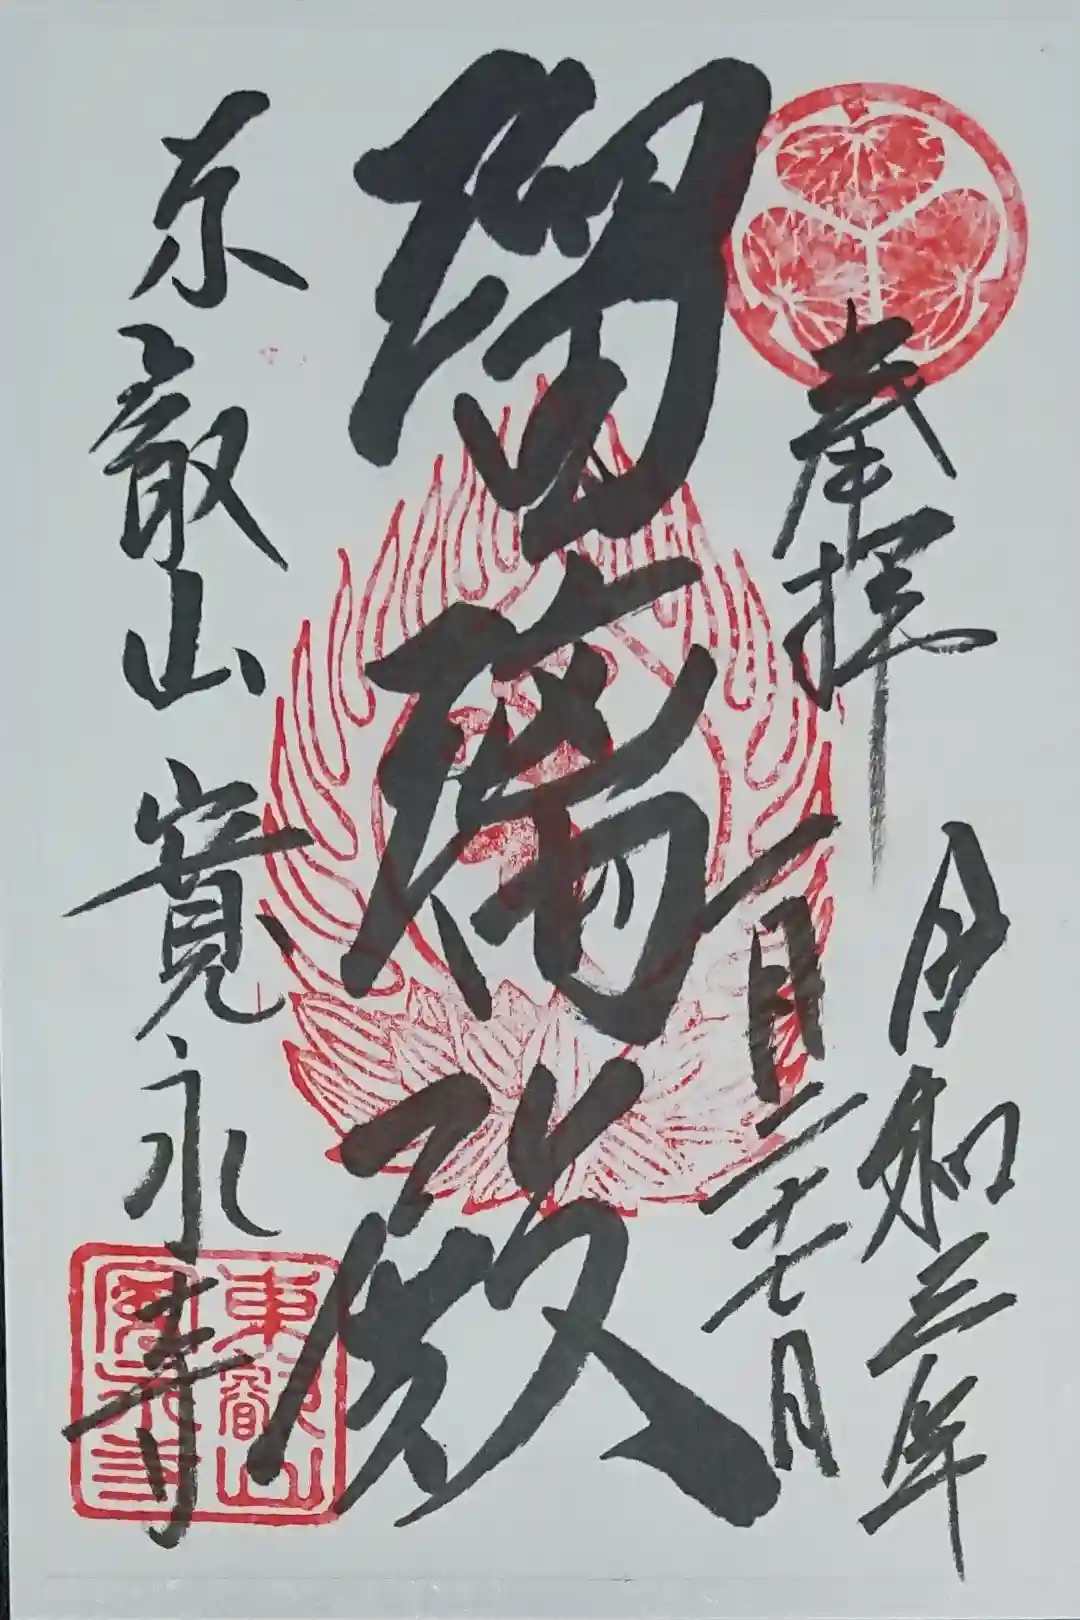 奉拝
令和三年
一月二十七日
瑠璃殿
東叡山 寛永寺
東叡山
寛永寺